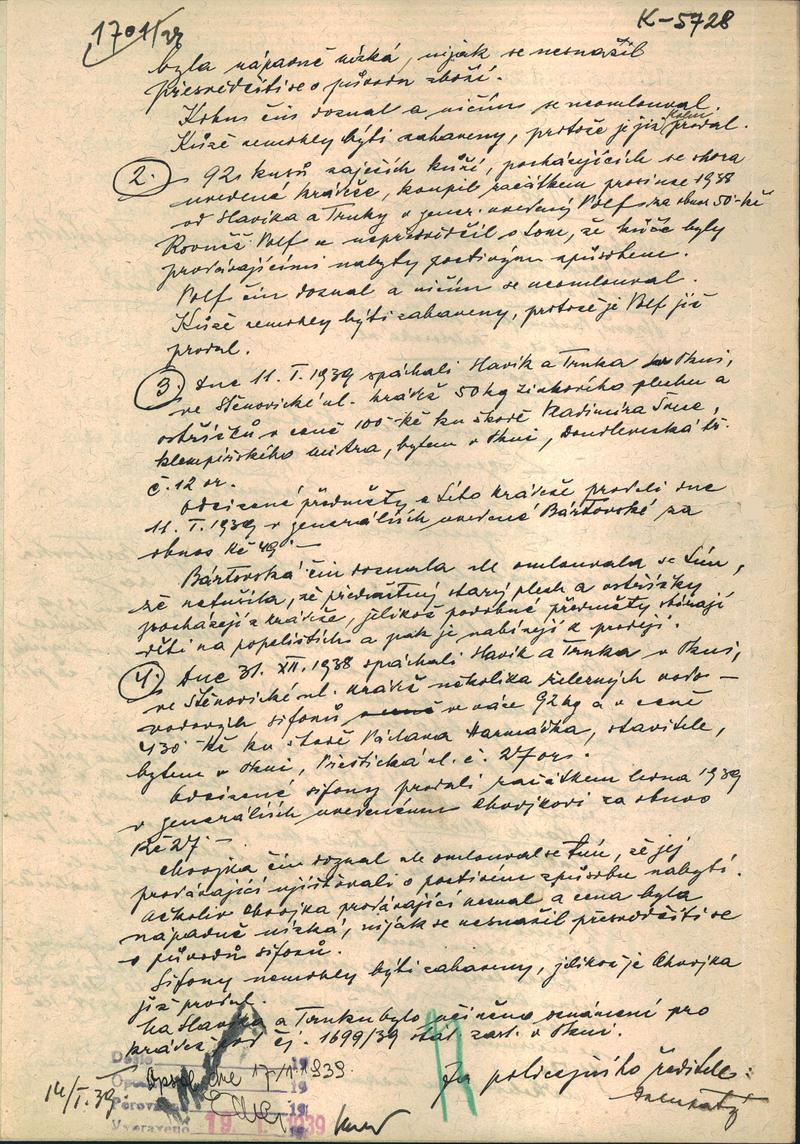 1701/39
K-5728
byla nápadně nízká, nijak se nesnažil
přesvědčiti se o původu zboží.
Kohn čin doznal a ničím se neomlouval.
Kůže nemohly býti zabaveny, protože je již Kohn prodal.
2. 92 kusů zaječích kůží, pocházejících se shora
uvedené krádeže, koupil začátkem prosince 1938
od Slavíka a Trnky v gener. uvedený Volf za obnos 50 Kč
Rovněž Volf se nepřesvědčil o tom, že kůže byly
prodávajícími nabyty poctivým způsobem.
Volf čin doznal a ničím se neomlouval.
Kůže nemohly býti zabaveny, protože je Volf již
prodal.
3. Dne 11. I. 1939 spáchali Slavík a Trnka v Plzni,
ve Štěnovické ul. krádež 50 kg zinkového plechu a
ostřižků v ceně 100 Kč ku škodě Vladimíra
klempířského mistra, bytem v Plzni, Doudlevecká tř.
č. 12 or.
Odcizené předměty z této krádeže prodali dne
11. I. 1939 v generáliích uvedené Bártovské za
obnos Kč 49.—
Bártovská čin doznala ale omlouvala se tím,
že netušila, že předmětný starý plech a ostřižky
pocházejí z krádeže, jelikož podobné předměty sbírají
děti na popelištích a pak je nabízejí k prodeji.
4. Dne 31. XII. 1938 spáchali Slavík a Trnka v Plzni,
ve Štěnovické ul. krádež několika železných vodo-
vodových sifonů ve váze 92 kg a v ceně
430 Kč ku škodě Václava Harmáčka, stavitele,
bytem v Plzni, Přeštická ul. č. 27 or.
Odcizené sifony prodali začátkem ledna 1939
v generáliích uvedenému Chvojkovi za obnos
Kč 27.—
Chvojka čin doznal ale omlouval se tím, že jej
prodávající ujišťovali o poctivém způsobu nabytí.
Ačkoliv Chvojka prodávající neznal a cena byla
nápadně nízká, nijak se nesnažil přesvědčiti se
o původu sifonů.
Sifony nemohly býti zabaveny, jelikož je Chvojka
již prodal.
Na Slavíka a Trnku bylo učiněno oznámení pro
krádež pod čj. 1699/39 stát. zast. v Plzni.
Za policejního ředitele:
14/I. 39
Došlo 19
Opsal dne 17/1. 1939.
Porovnáno 19
Vypraveno 19. 1939